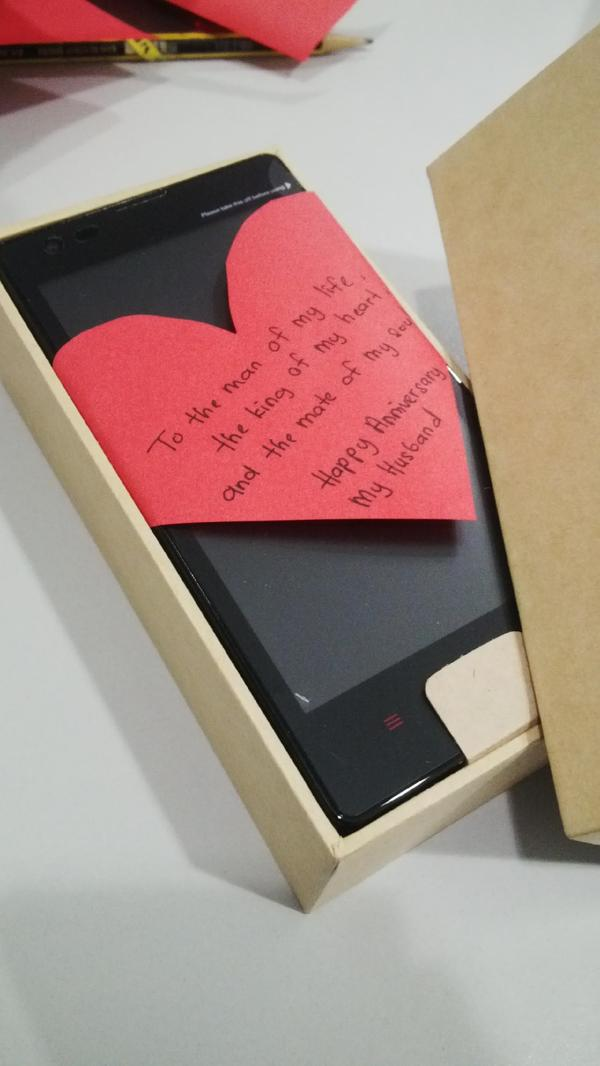 Please take this off before using
To the man of my life,
the king of my heart
and the mate of my soul
Happy Anniversary
My Husband